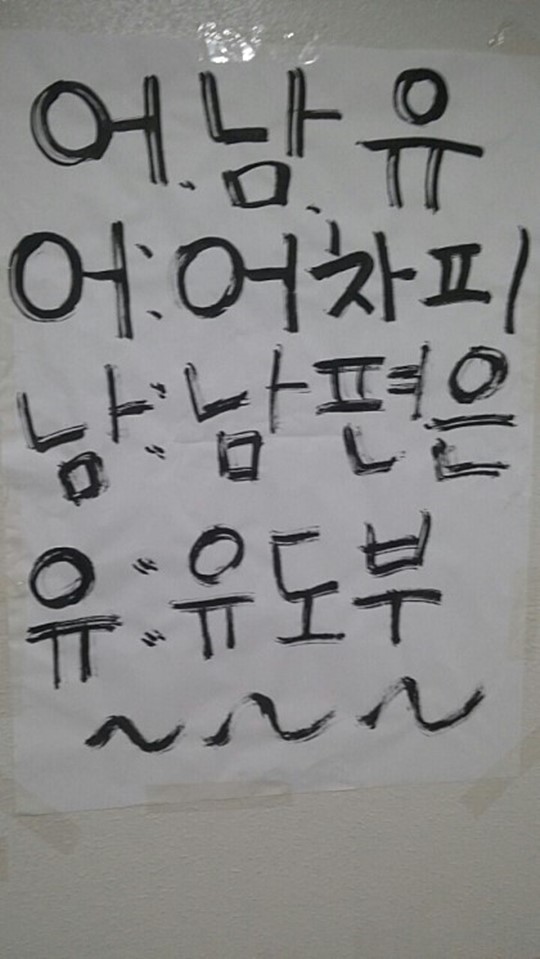 어.남.유
어:어차피
남:남편은
유:유도부
~~~